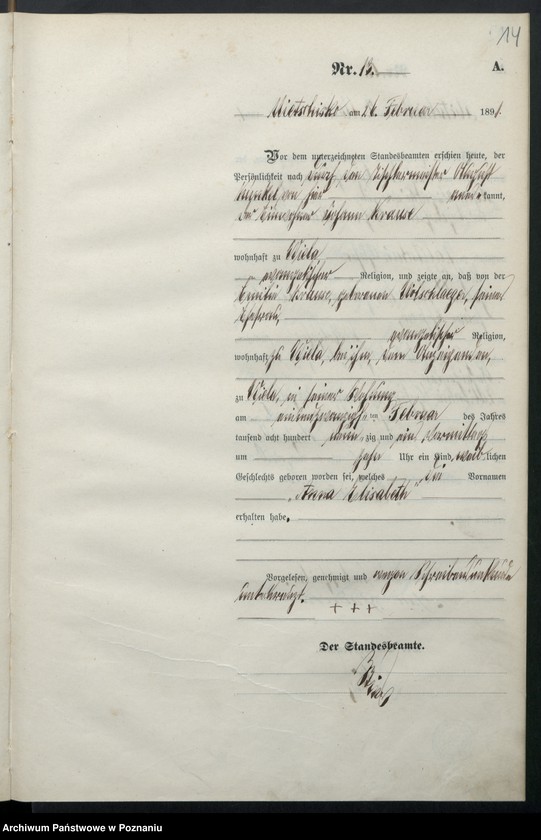 14
Nr. 13.
A.
Mietschisko am 26. Februar 1891.
Vor dem unterzeichneten Standesbeamten erschien heute, der
Persönlichkeit nach durch den Tischlermeister August
von hier kannt,
der Einwohner Johann Krause
wohnhaft zu
evangelischer Religion, und zeigte an, daß von der
Emilie Krause, geborenen seiner
Ehefrau,
evangelischer Religion,
wohnhaft zu bei ihm, dem Anzeigenden,
zu in seiner Wohnung
am einundzwanzigsten Februar des Jahres
tausend acht hundert neun zig und ein Vormittags
um zehn Uhr ein Kind weiblichen
Geschlechts geboren worden sei, welches die Vornamen
„Anna Elisabeth"
erhalten habe.
Vorgelesen, genehmigt und wegen Schreibensunkunde
unterkreuzt.
+ + +
Der Standesbeamte.
Archiwum Państwowe w Poznaniu